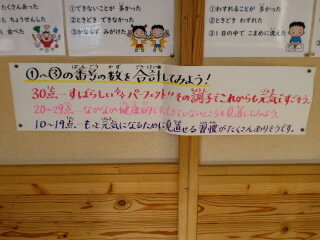 たくさんあった
もちょうせんした
①できないことが 多かった
②ときどき できた
③かなりず みがけた
①わすれることが 多かった
②ときどき わすれた
③1日の中で こまめに洗えた
①〜⑧の番号の数を合計してみよう！
30点…すばらしい!!パーフェクト!!その調子でこれからも元気ですごそう。
20〜29点…なかなか健康的です。できていないところを見直してみよう。
10〜19点…もっと元気になるために見直せる習慣がたくさんありそうです。